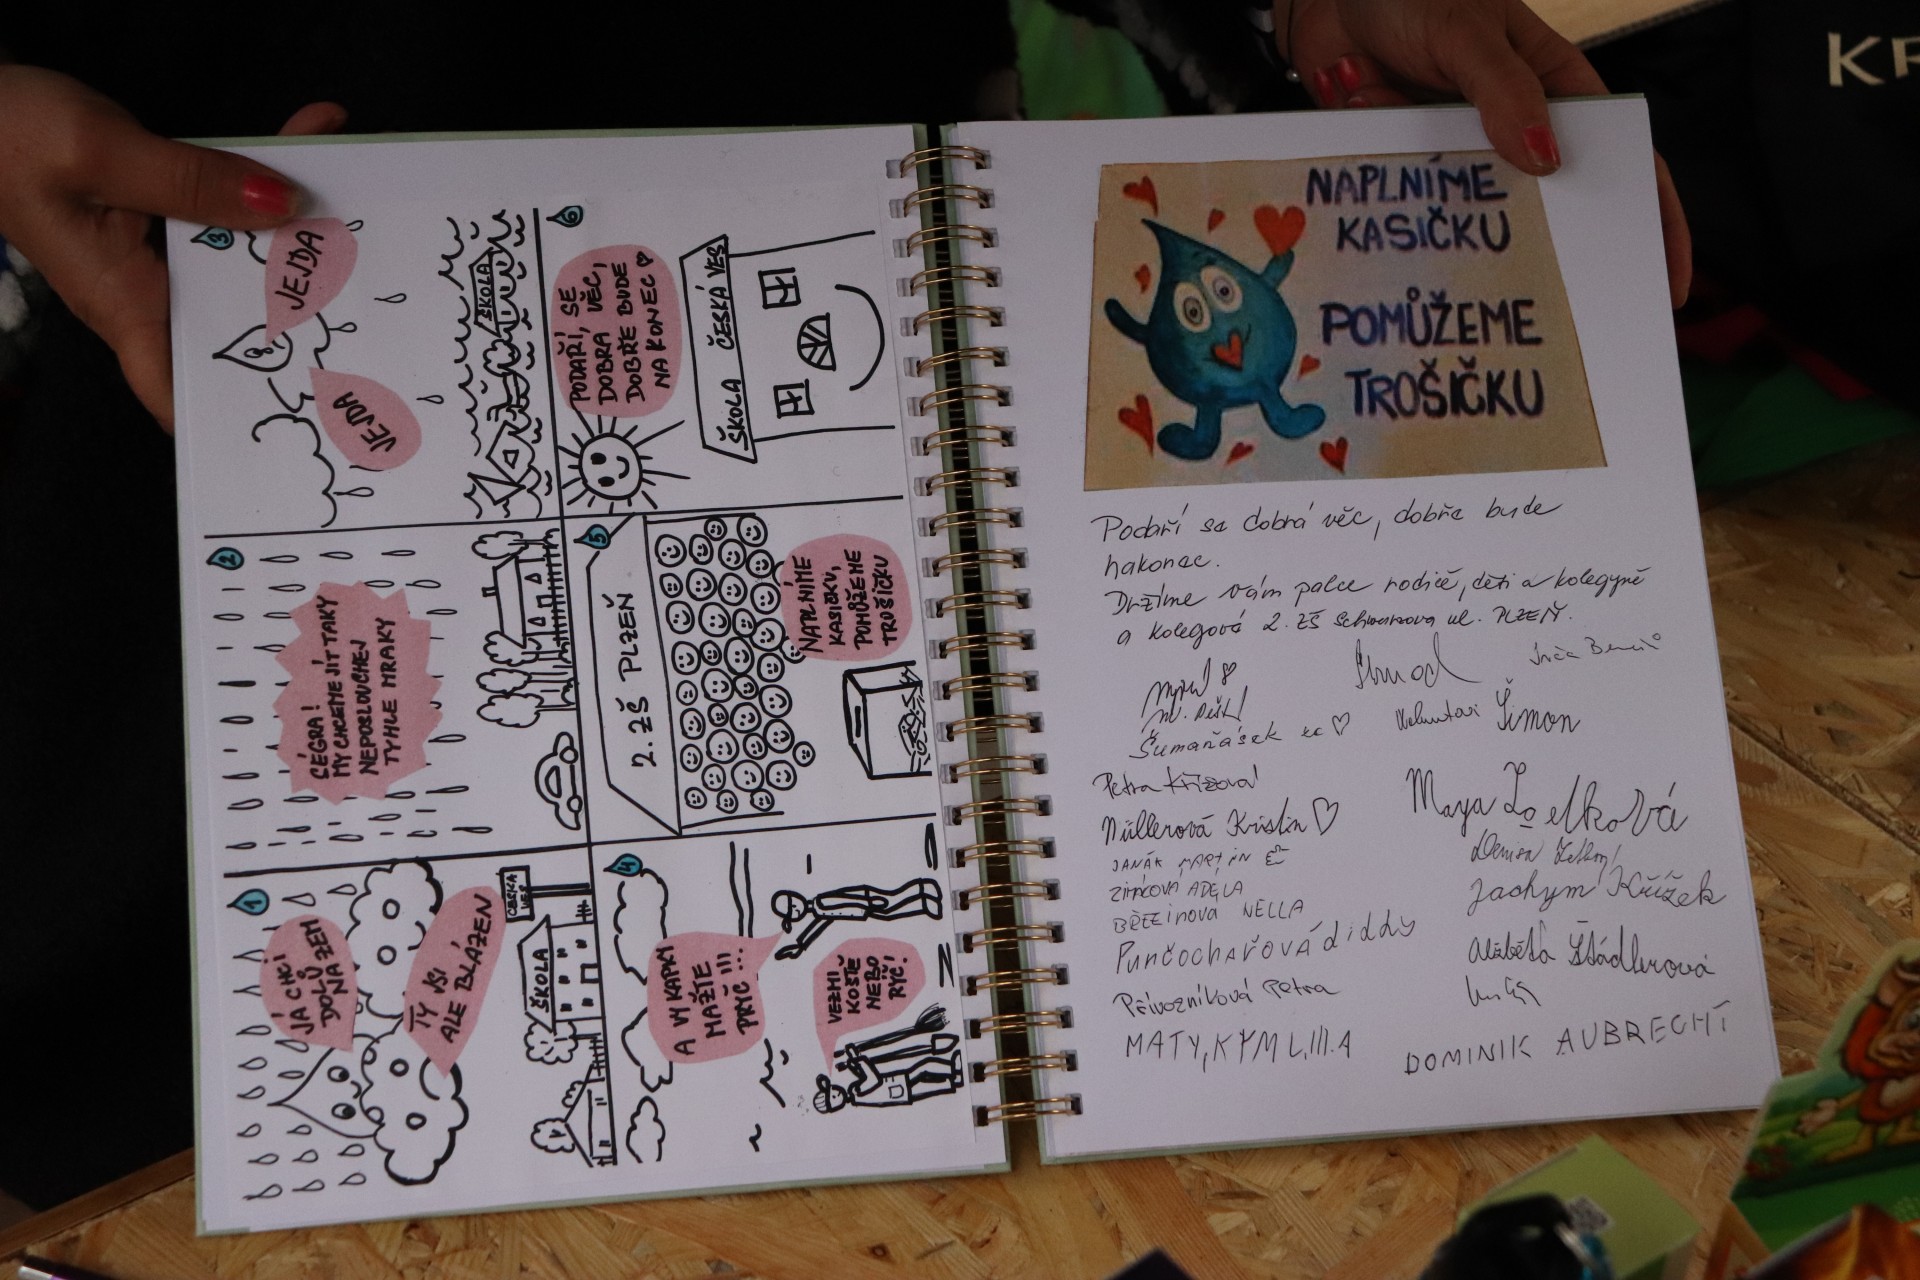 KR
1
JÁ CHCI
DOLŮ
NA ZEM
TY JSI
ALE BLÁZEN
ČESKÁ
VES
ŠKOLA
2
SÉGRA!
MY CHCEME JÍT TAKY
NEPOSLOUCHEJ
TYHLE MRAKY
3
JEJDA
JEJDA
ŠKOLA
4
A VY KAPKY
MAŽTE
PRYČ!!!
VEZMI
KOŠTĚ
NEBO
RÝČ!
5
2. ZŠ PLZEŇ
NAPLNÍME
KASIČKU,
POMŮŽEME
TROŠIČKU
6
PODAŘÍ, SE
DOBRÁ VĚC,
DOBŘE BUDE
NA KONEC
ŠKOLA ČESKÁ VES
NAPLNÍME
KASIČKU
POMŮŽEME
TROŠIČKU
Podaří se dobrá věc, dobře bude
nakonec.
Držíme vám palce rodiče, děti a kolegyně
a kolegové 2. ZŠ Schwarzova ul. PLZEŇ.
Šimon
Petra Křížová
Müllerová Kristin
Maya
JANÁK MARTIN
Denisa
ADÉLA
Jáchym Křížek
BŘEZINOVÁ NELLA
Punčochařová diddy
Alžběta Štádlerová
Přívozníková Petra
MATY, KÝML, III.A
DOMINIK AUBRECHT